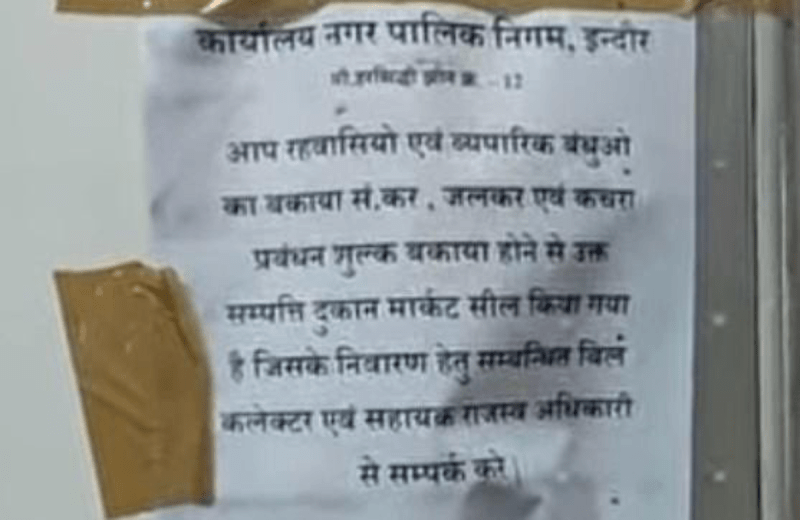 कार्यालय नगर पालिक निगम, इन्दौर
श्री हरसिद्धी झोन क्र. - 12
आप रहवासियो एवं व्यपारिक बंधुओ
का बकाया सं.कर , जलकर एवं कचरा
प्रबंधन शुल्क बकाया होने से उक्त
सम्पत्ति दुकान मार्केट सील किया गया
है जिसके निवारण हेतु सम्बन्धित बिल
कलेक्टर एवं सहायक राजस्व अधिकारी
से सम्पर्क करे |